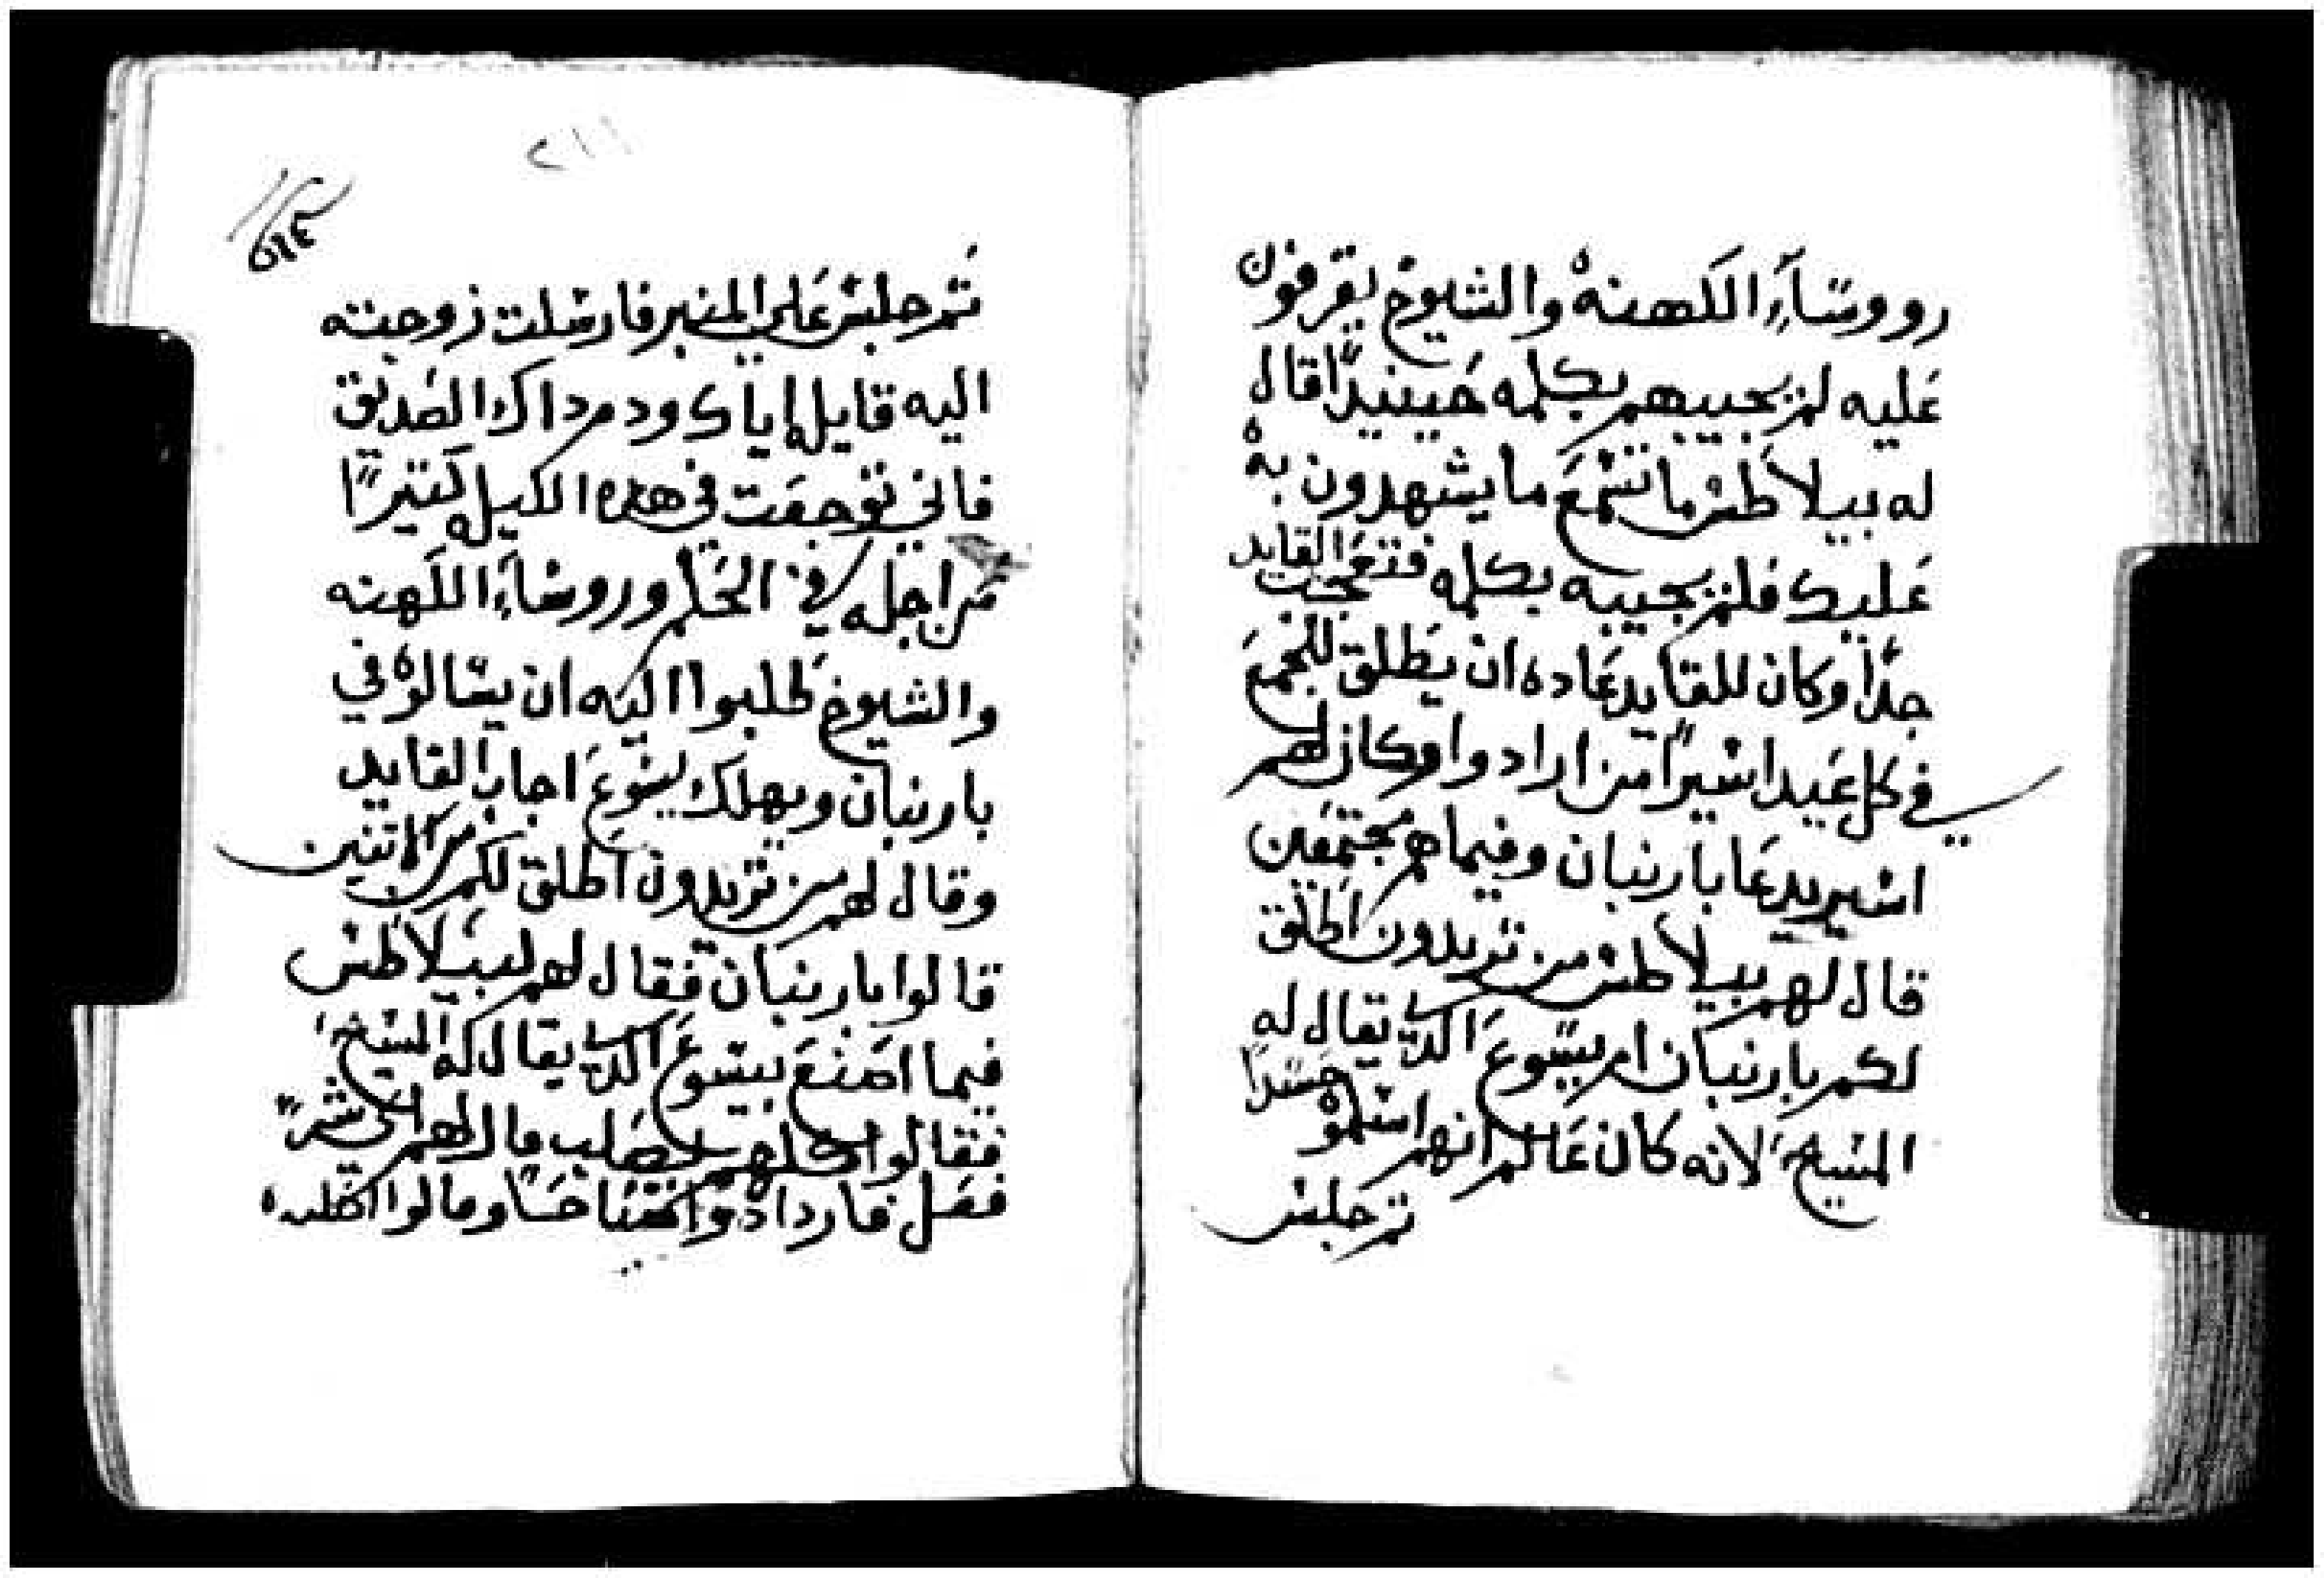 رووسآء الكهنة والشيوخ يقرفون
عليه لم يجيبهم بكلمه حينيدا قال
له بيلاطس ما تسمع ما يشهدون به
عليك فلم يجيبه بكلمه فتعجب القايد
جدا وكان للقايد عاده ان يطلق للجمع
في كل عيد اسيرا من ارادوا وكان لهم
اسير يدعا بارنبان وفيما هم مجتمعين
قال لهم بيلاطس من تريدون اطلق
لكم بارنبان ام يسوع الدي يقال له
المسيح لانه كان عالم انهم اسلموه حسدا
تم جلس
٢١١
تم جلس على المنبر فارسلت زوجته
اليه قايله اياك ودم داك الصديق
فاني توجعت في هده الليله كتيرا
من اجله في الحلم ورووسآء الكهنه
والشيوخ طلبوا اليه ان يسالوه في
بارنبان ويهلك يسوع اجاب القايد
وقال لهم من تريدون اطلق لكم من الاتنين
قالوا بارنبان فقال لهم بيلاطس
فيما اصنع بيسوع الدي يقال له المسيح
فقالوا كلهم يصلب قال لهم اي شر
فعل فازدادوا صياحا وقالوا اصلبه